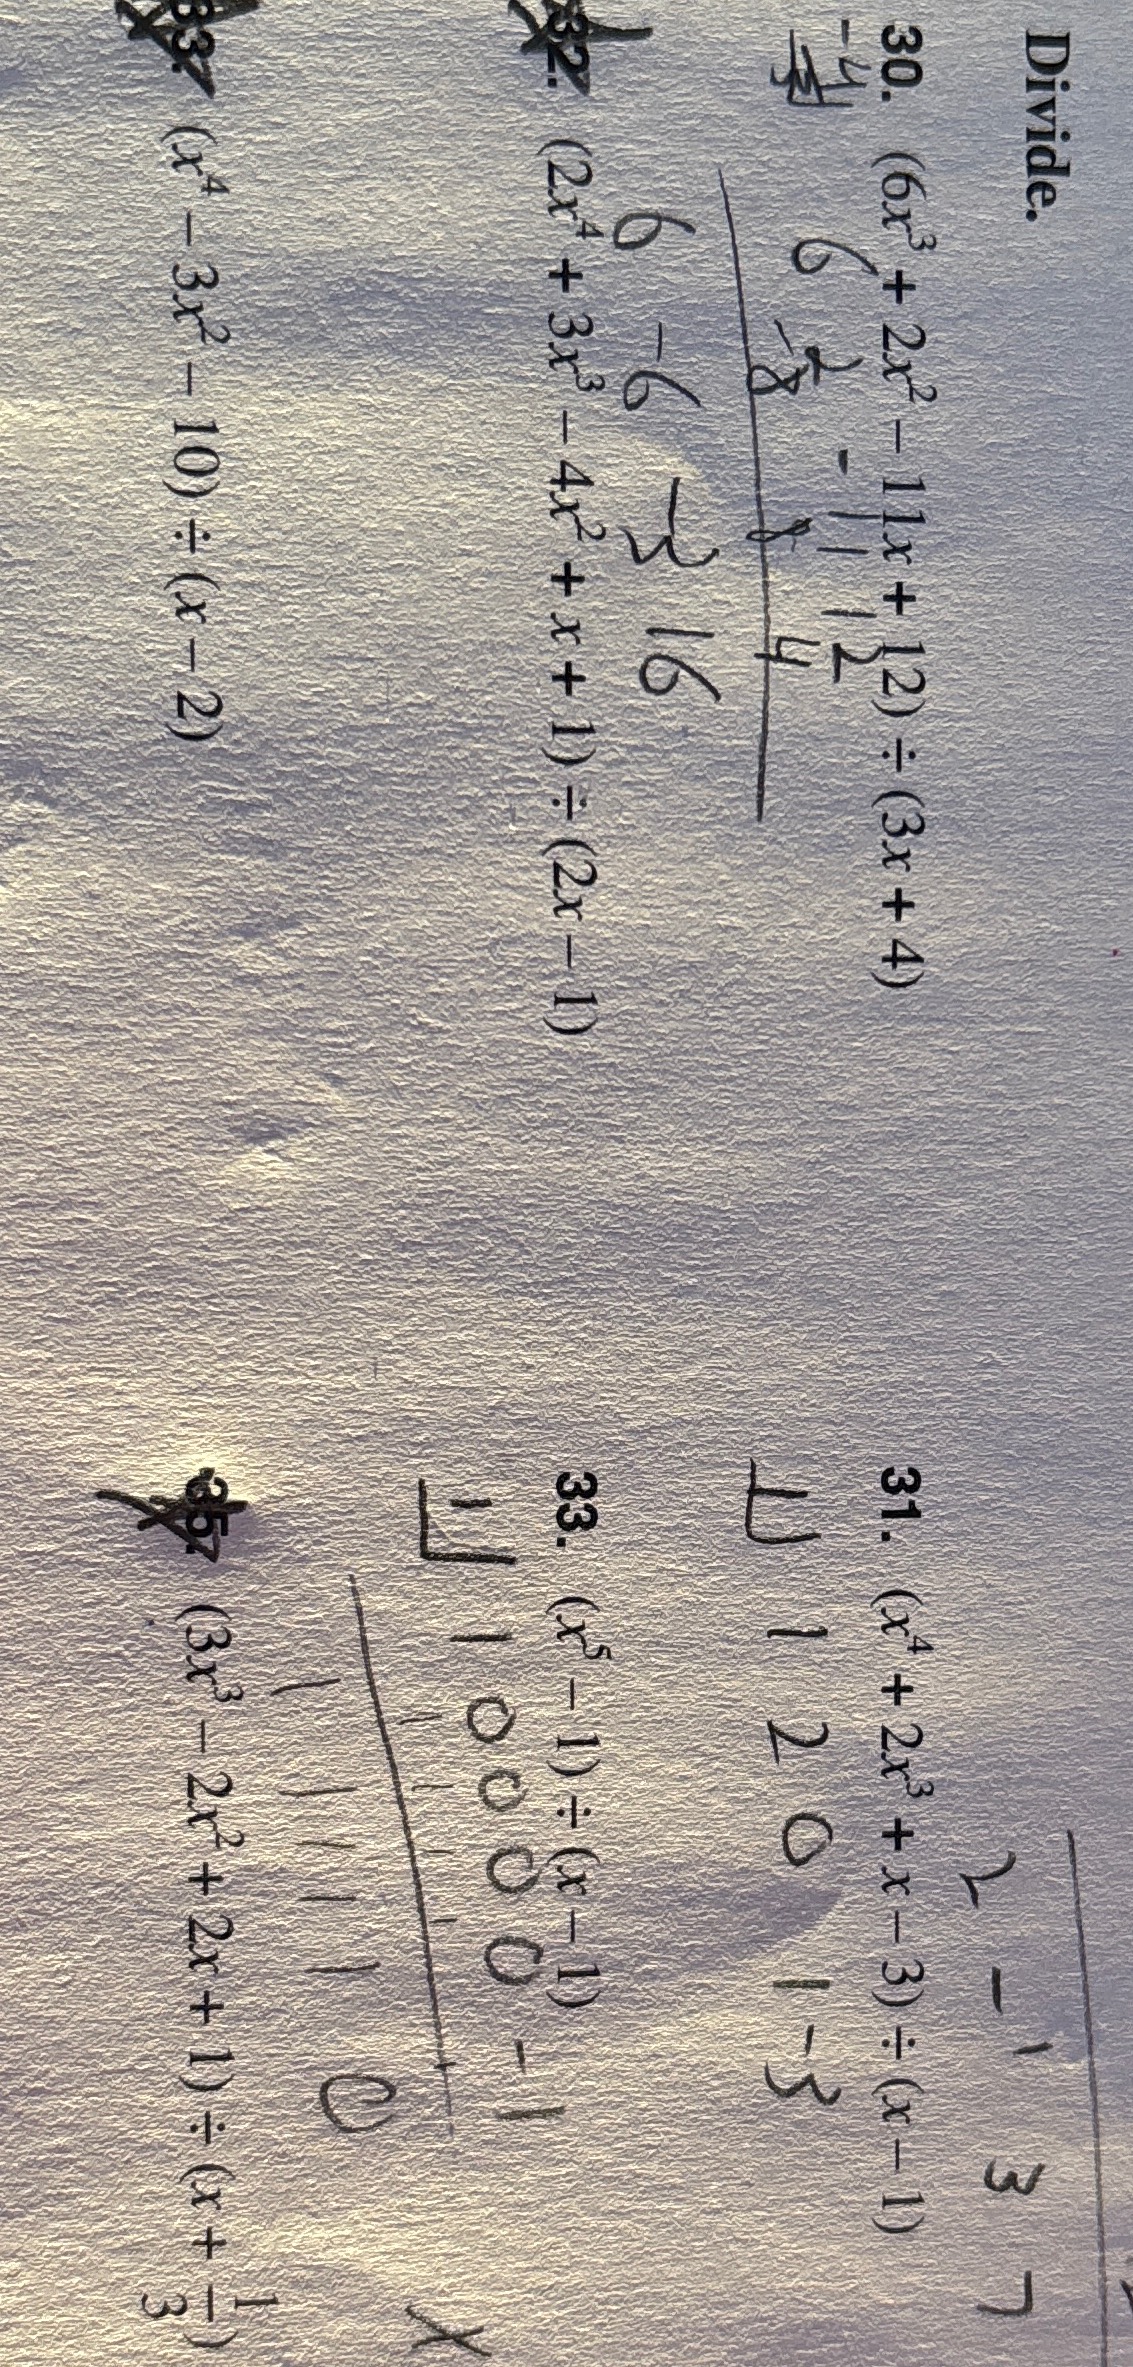 Divide.
30. (6x³ + 2x² − 11x + 12) ÷ (3x + 4)
6 2 -11 12
-8 8 4
6 -6 -3 16
2 -1 3 7
31. (x⁴ + 2x³ + x − 3) ÷ (x − 1)
1 1 2 0 1 -3
32. (2x⁴ + 3x³ − 4x² + x + 1) ÷ (2x − 1)
33. (x⁵ − 1) ÷ (x − 1)
1 1 0 0 0 0 -1
1 1 1 1 1
1 1 1 1 1 0
(x⁴ − 3x² − 10) ÷ (x − 2)
35. (3x³ − 2x² + 2x + 1) ÷ (x + 1/3)